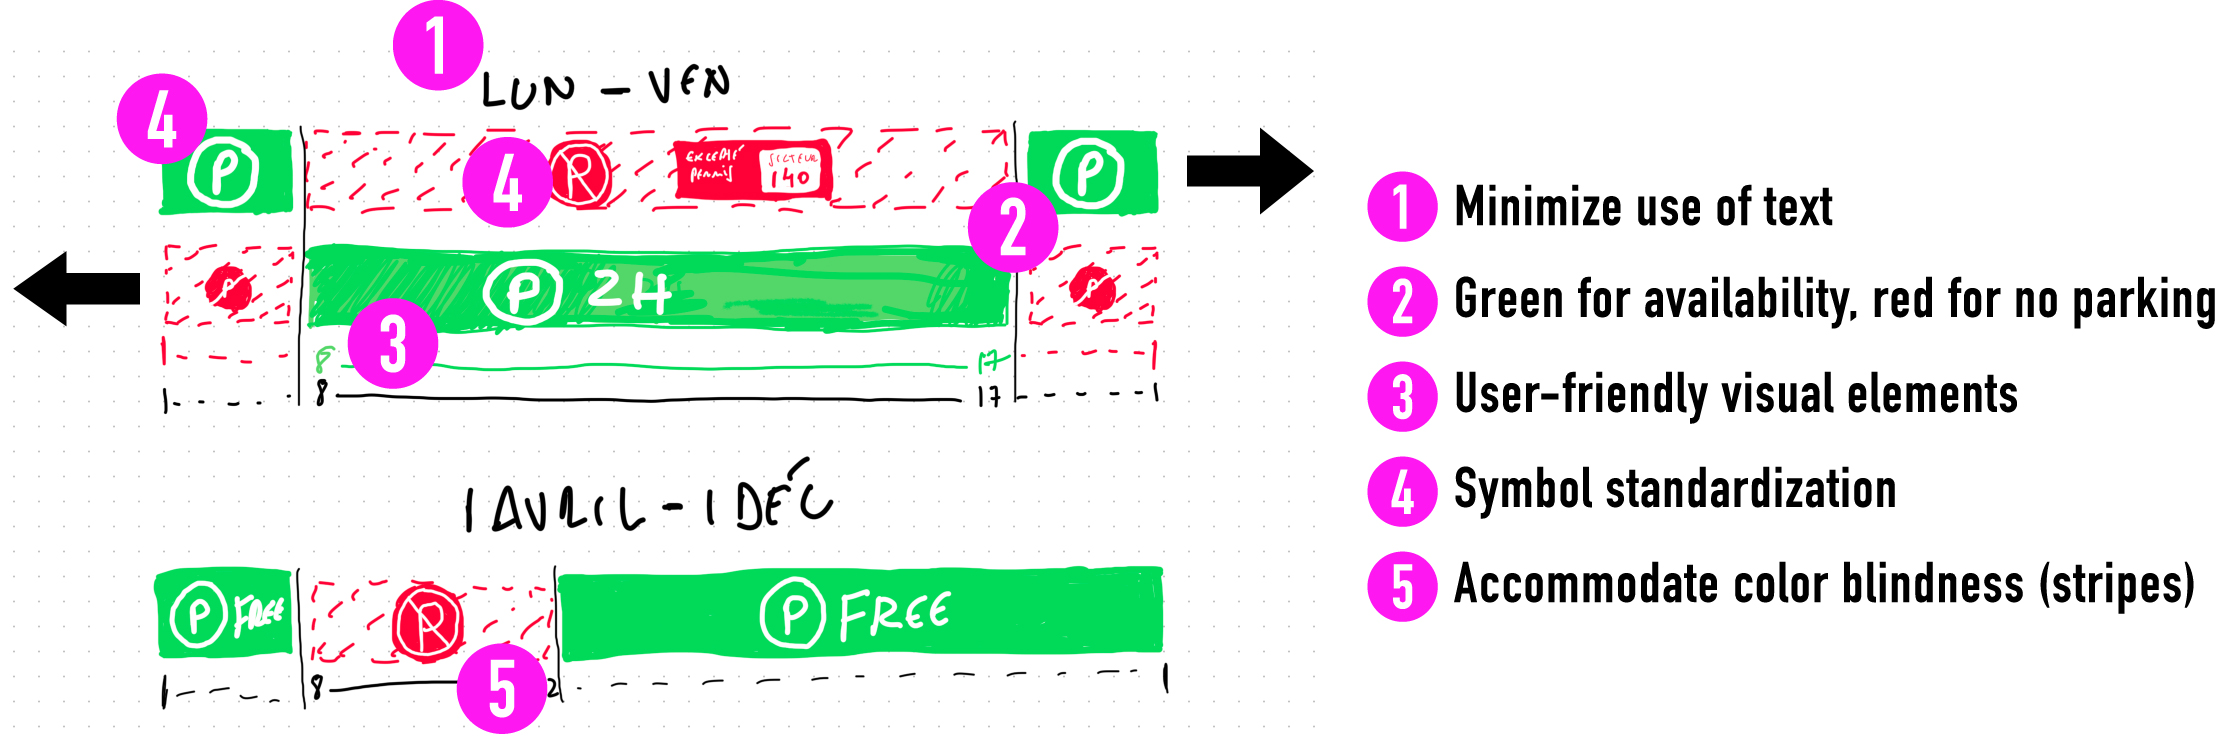 1
LUN - VEN
4
P
4
P
EXCEPTÉ
PERMIS
SECTEUR
140
P
2
P
P 2H
P
3
8 17
8 17
1 AVRIL - 1 DÉC
P FREE
P
P FREE
8 2
5
1 Minimize use of text
2 Green for availability, red for no parking
3 User-friendly visual elements
4 Symbol standardization
5 Accommodate color blindness (stripes)